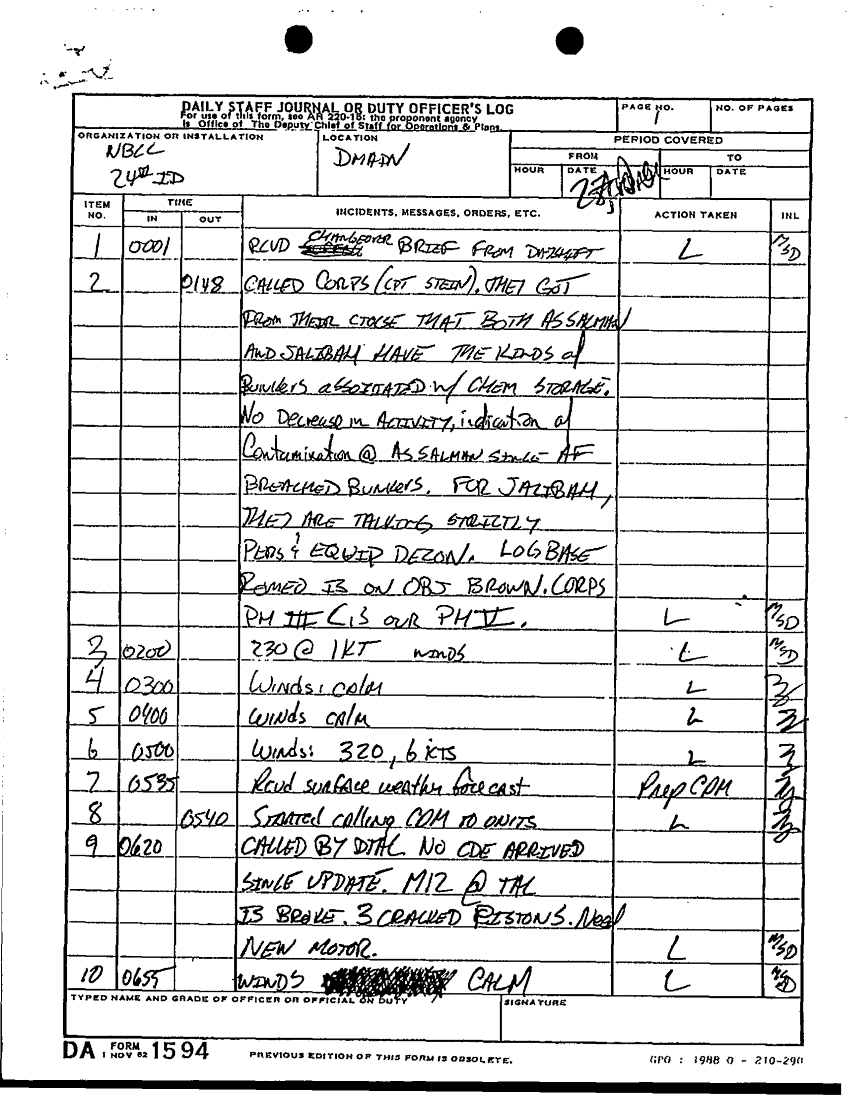 DAILY STAFF JOURNAL OR DUTY OFFICER'S LOG
For use of this form, see AR 220-15; the proponent agency
is Office of The Deputy Chief of Staff for Operations & Plans.
PAGE NO.
1
NO. OF PAGES
ORGANIZATION OR INSTALLATION
NBCC
24th ID
LOCATION
DMAIN
PERIOD COVERED
FROM
TO
HOUR
DATE
HOUR
DATE
ITEM NO.
TIME
IN
OUT
INCIDENTS, MESSAGES, ORDERS, ETC.
ACTION TAKEN
INL
1 0001 RCVD CHANGEOVER BRIEF FROM L MSD
2 0148 CALLED CORPS (CPT STEIN). THEY GOT
FROM THEIR CTOCSE THAT BOTH AS SALMAN
AND JALIBAH HAVE THE KINDS of
Bunkers assoitated w/ CHEM STORAGE.
No Decrease in Activity, indication of
Contamination @ AS SALMAN SINCE AF
BREACHED BUNKERS. FOR JALIBAH,
THEY ARE TALKING STRICTLY
PERS & EQUIP DECON. LOGBASE
ROMEO IS ON OBJ BROWN. CORPS
PH III C is OUR PH V. L MSD
3 0200 230 @ 1KT WINDS L MSD
4 0300 Winds: CALM L
5 0400 WINDS CALM L
6 0500 Winds: 320, 6 KTS L
7 0535 Rcvd surface weather forecast Prep CDM
8 0540 STARTED calling CDM TO UNITS L
9 0620 CALLED BY DTAC NO CDE ARRIVED
SINCE UPDATE. M12 @ TAC
IS BROKE. 3 CRACKED PISTONS. Need
NEW MOTOR. L MSD
10 0655 WINDS CALM L MSD
TYPED NAME AND GRADE OF OFFICER OR OFFICIAL ON DUTY
SIGNATURE
DA FORM 1 NOV 62 1594
PREVIOUS EDITION OF THIS FORM IS OBSOLETE.
GPO : 1988 O - 210-290